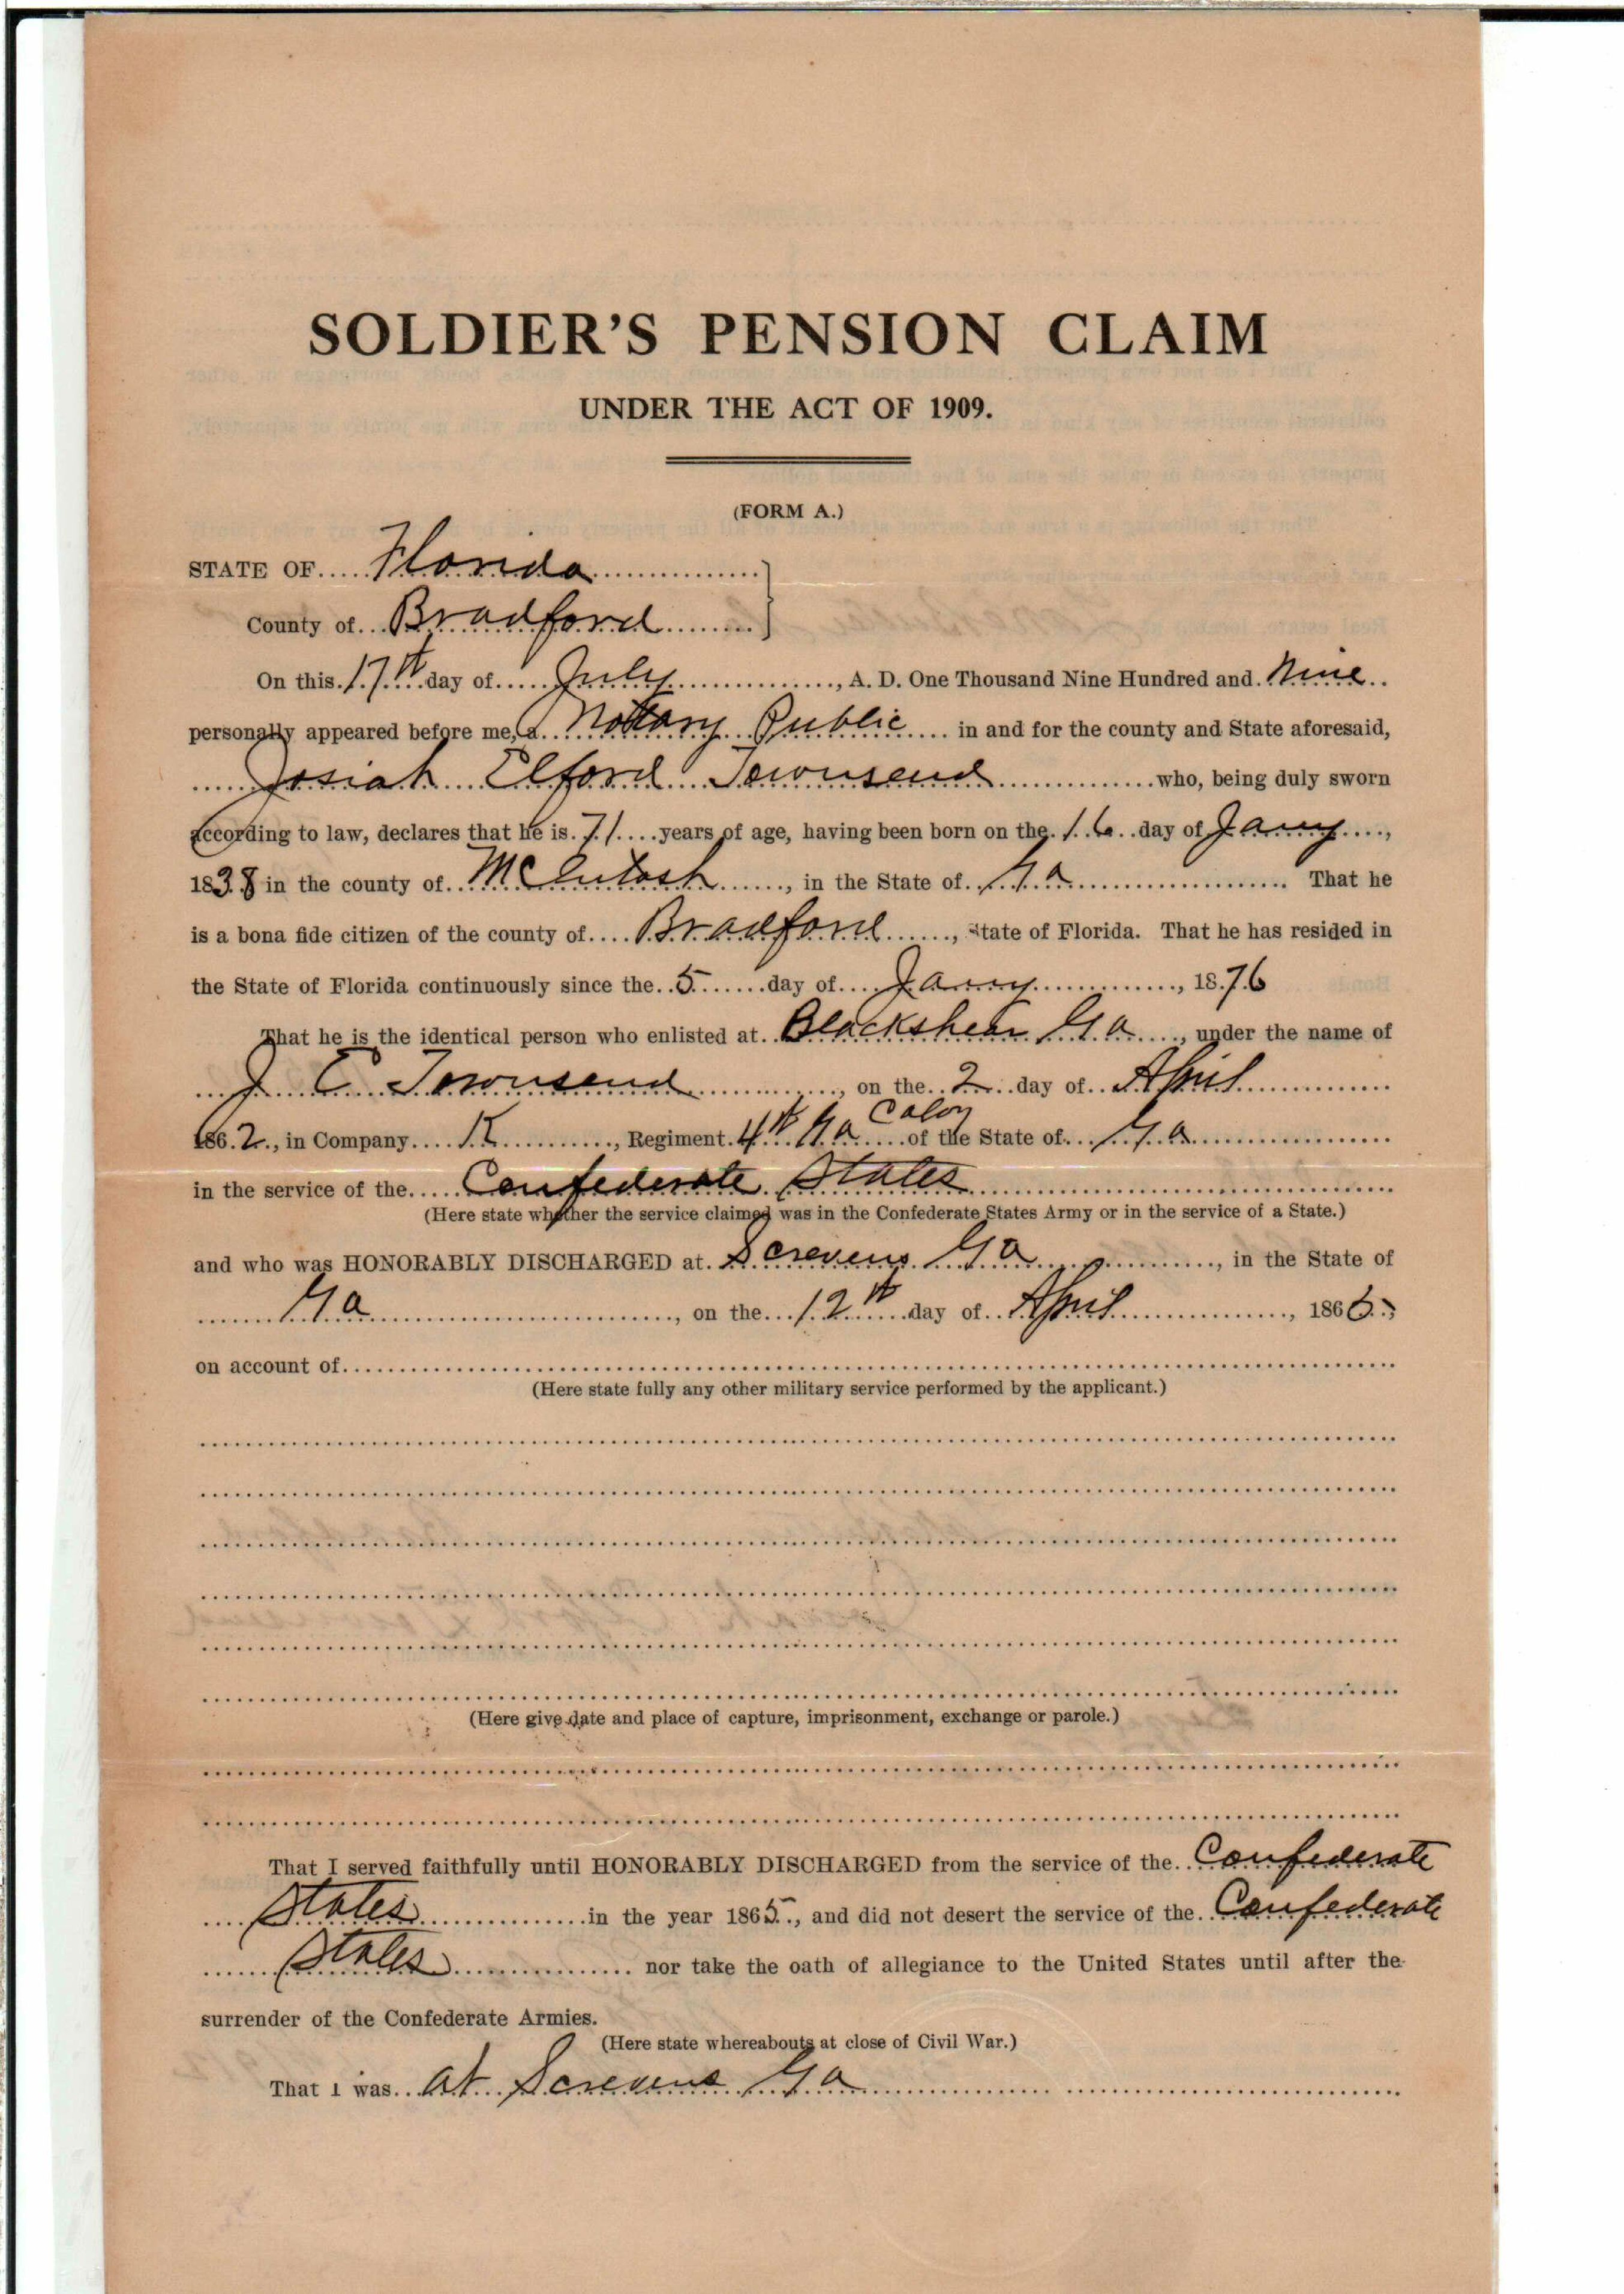 SOLDIER'S PENSION CLAIM
UNDER THE ACT OF 1909.
(FORM A.)
STATE OF Florida
County of Bradford
On this 17th day of July, A. D. One Thousand Nine Hundred and Nine
personally appeared before me, a Nottary Public in and for the county and State aforesaid,
Josiah Elford Townsend who, being duly sworn
according to law, declares that he is 71 years of age, having been born on the 16 day of Jany,
1838 in the county of McIntosh, in the State of Ga. That he
is a bona fide citizen of the county of Bradford, State of Florida. That he has resided in
the State of Florida continuously since the 5 day of Jany, 1876
That he is the identical person who enlisted at Blackshear Ga, under the name of
J E Townsend, on the 2 day of April
1862, in Company K, Regiment 4th Ga Calvy of the State of Ga
in the service of the Confederate States
(Here state whether the service claimed was in the Confederate States Army or in the service of a State.)
and who was HONORABLY DISCHARGED at Screvens Ga, in the State of
Ga, on the 12th day of April, 1865,
on account of
(Here state fully any other military service performed by the applicant.)
(Here give date and place of capture, imprisonment, exchange or parole.)
That I served faithfully until HONORABLY DISCHARGED from the service of the Confederate
States in the year 1865, and did not desert the service of the Confederate
States nor take the oath of allegiance to the United States until after the
surrender of the Confederate Armies.
(Here state whereabouts at close of Civil War.)
That I was at Screvens Ga